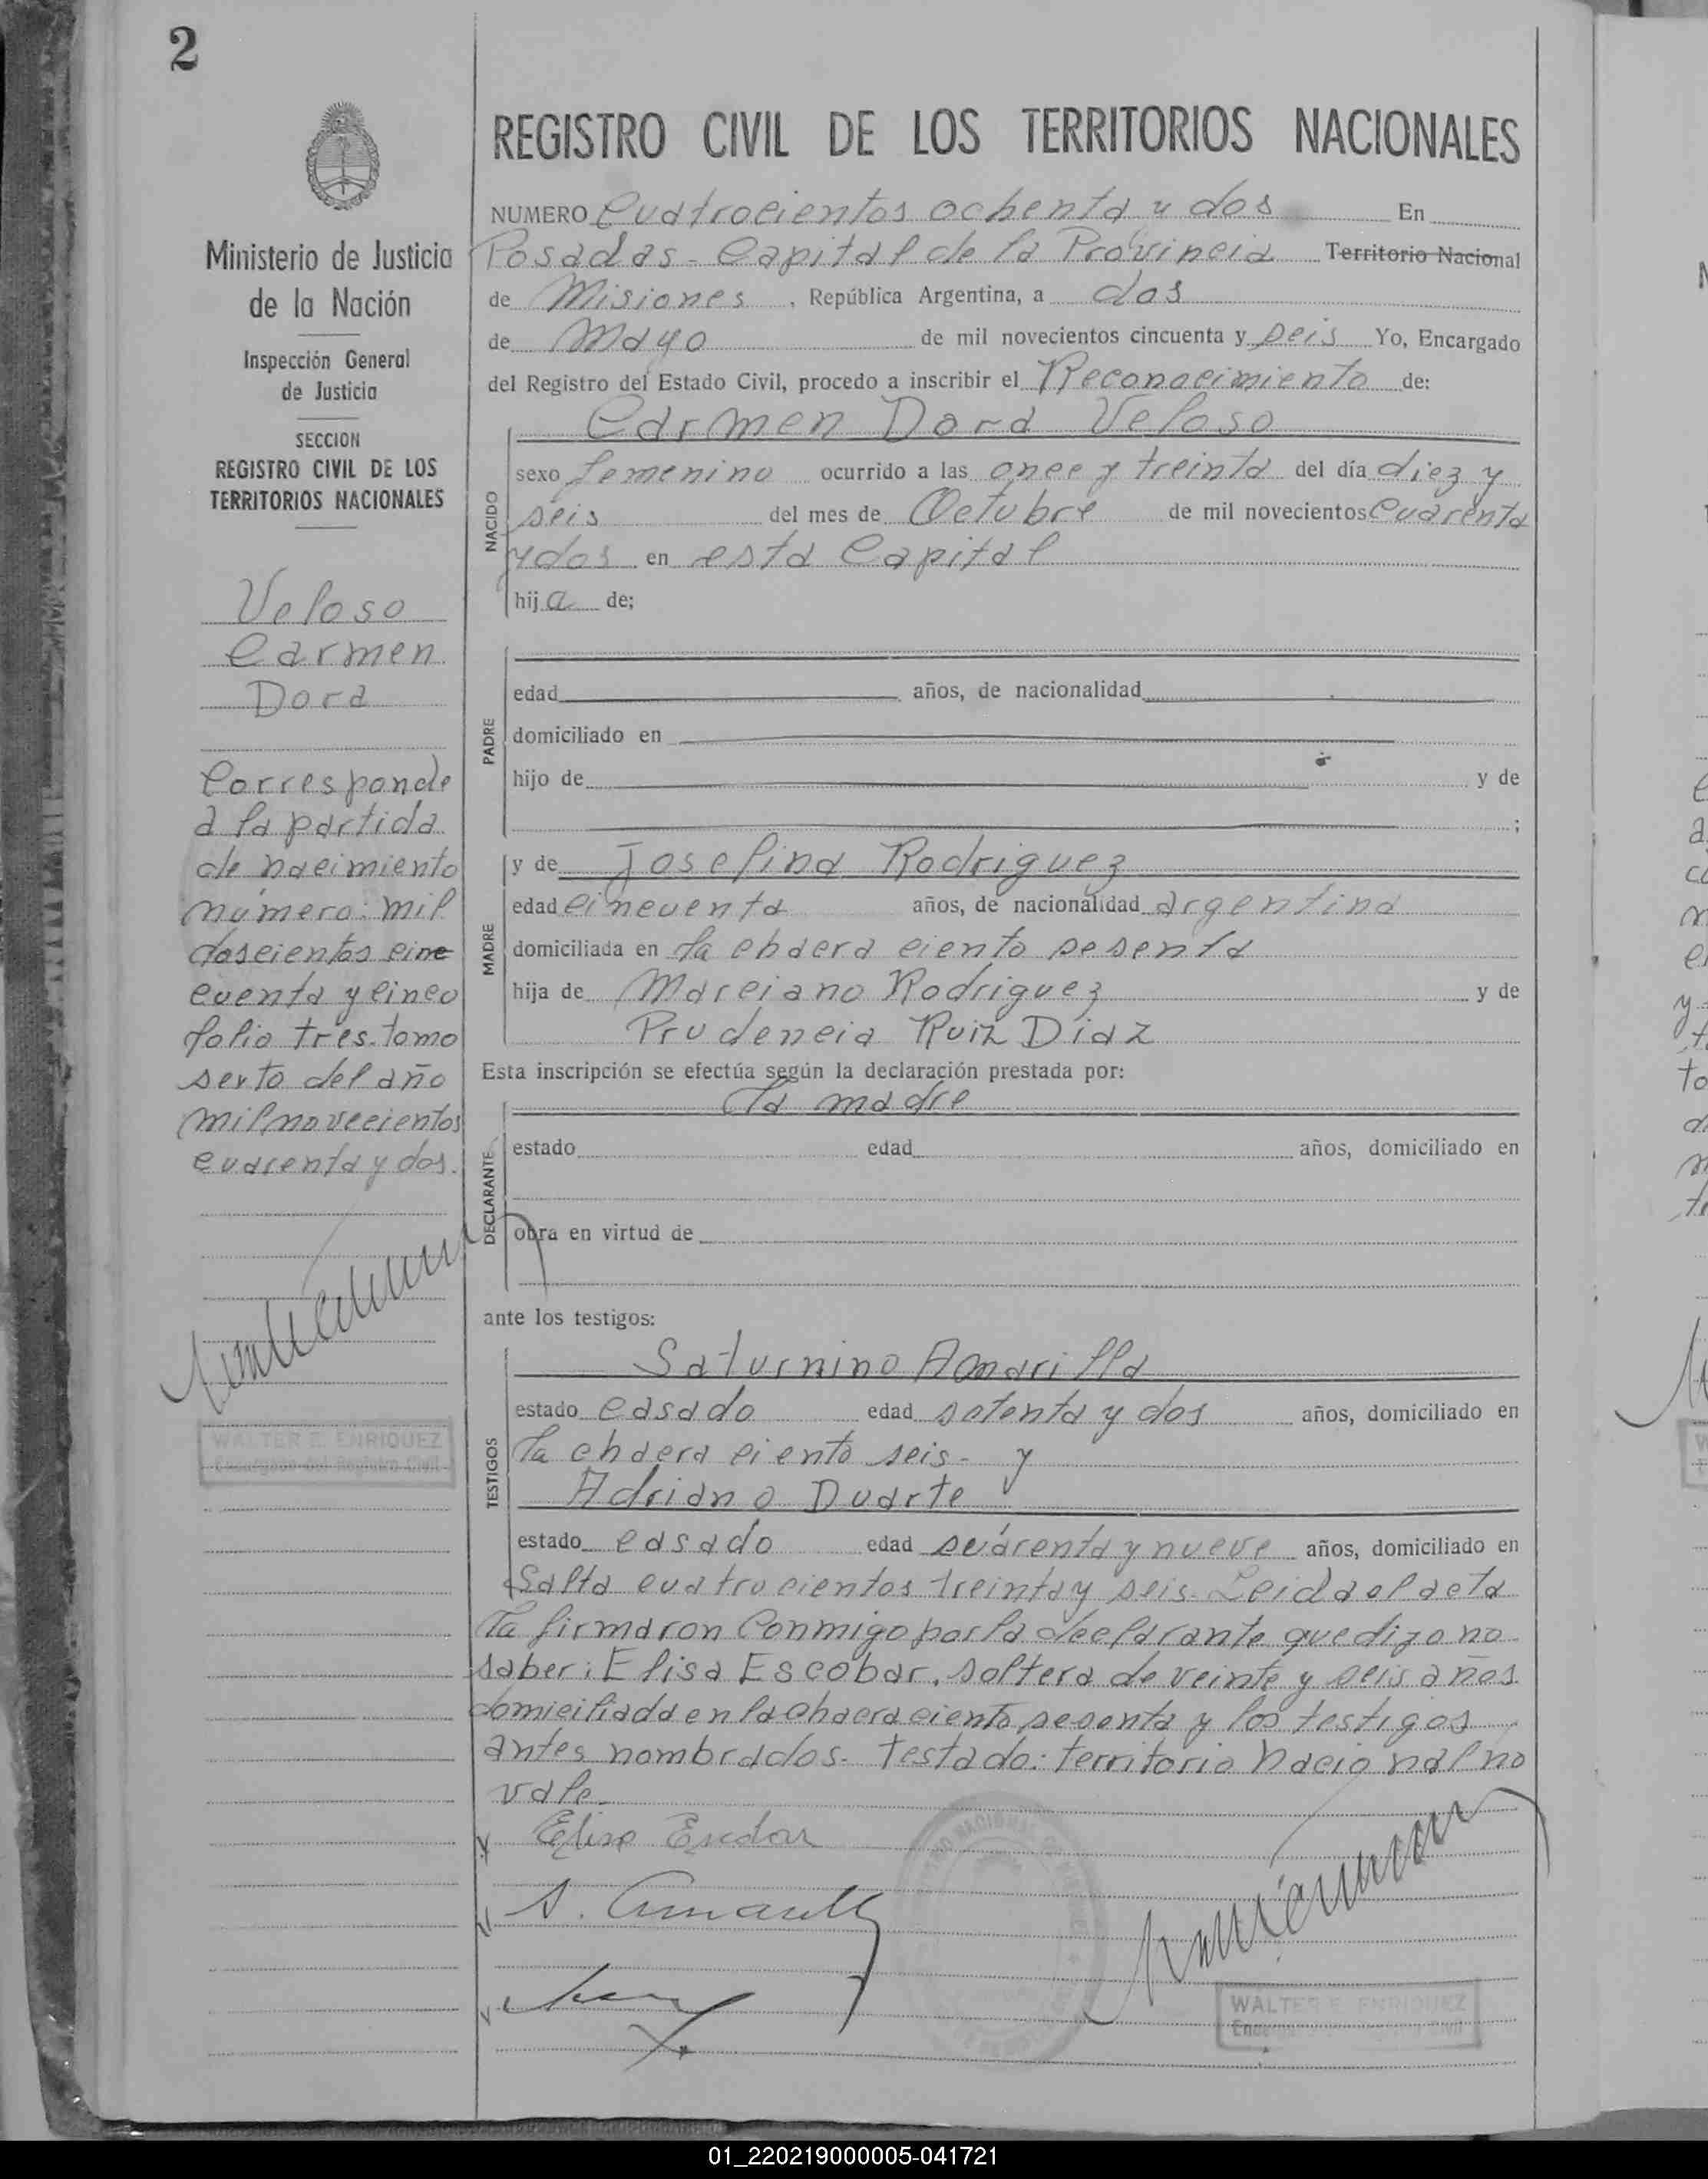 2
Ministerio de Justicia
de la Nación
Inspección General
de Justicia
SECCION
REGISTRO CIVIL DE LOS
TERRITORIOS NACIONALES
Veloso
Carmen
Dora
Corresponde
a la partida
de nacimiento
número: mil
doscientos cinc
cuenta y cinco
folio tres. tomo
sexto del año
mil novecientos
cuarenta y dos.
WALTER E. ENRIQUEZ
Encargado del Registro Civil
REGISTRO CIVIL DE LOS TERRITORIOS NACIONALES
NUMERO Cuatrocientos ochenta y dos En
Posadas - Capital de la Provincia Territorio Nacional
de Misiones, República Argentina, a dos
de Mayo de mil novecientos cincuenta y seis Yo, Encargado
del Registro del Estado Civil, procedo a inscribir el Reconocimiento de:
Carmen Dora Veloso
NACIDO
sexo femenino ocurrido a las once y treinta del día diez y
seis del mes de Octubre de mil novecientos cuarenta
y dos en esta Capital
hija de;
PADRE
edad años, de nacionalidad
domiciliado en
hijo de y de
;
MADRE
y de Josefina Rodriguez
edad cincuenta años, de nacionalidad argentina
domiciliada en la chacra ciento sesenta
hija de Marciano Rodriguez y de
Prudencia Ruiz Diaz
Esta inscripción se efectúa según la declaración prestada por:
la madre
DECLARANTE
estado edad años, domiciliado en
obra en virtud de
ante los testigos:
TESTIGOS
Saturnino Amarilla
estado casado edad setenta y dos años, domiciliado en
la chacra ciento seis - y
Adriano Duarte
estado casado edad cuarenta y nueve años, domiciliado en
Salta cuatrocientos treinta y seis. Leida el acta
la firmaron conmigo por la declarante que dijo no
saber: Elisa Escobar, soltera de veinte y seis años
domiciliada en la chacra ciento sesenta y los testigos
antes nombrados. Testado: territorio nacional no
vale.
Elisa Escobar
S. Amarilla
WALTER E. ENRIQUEZ
01_220219000005-041721